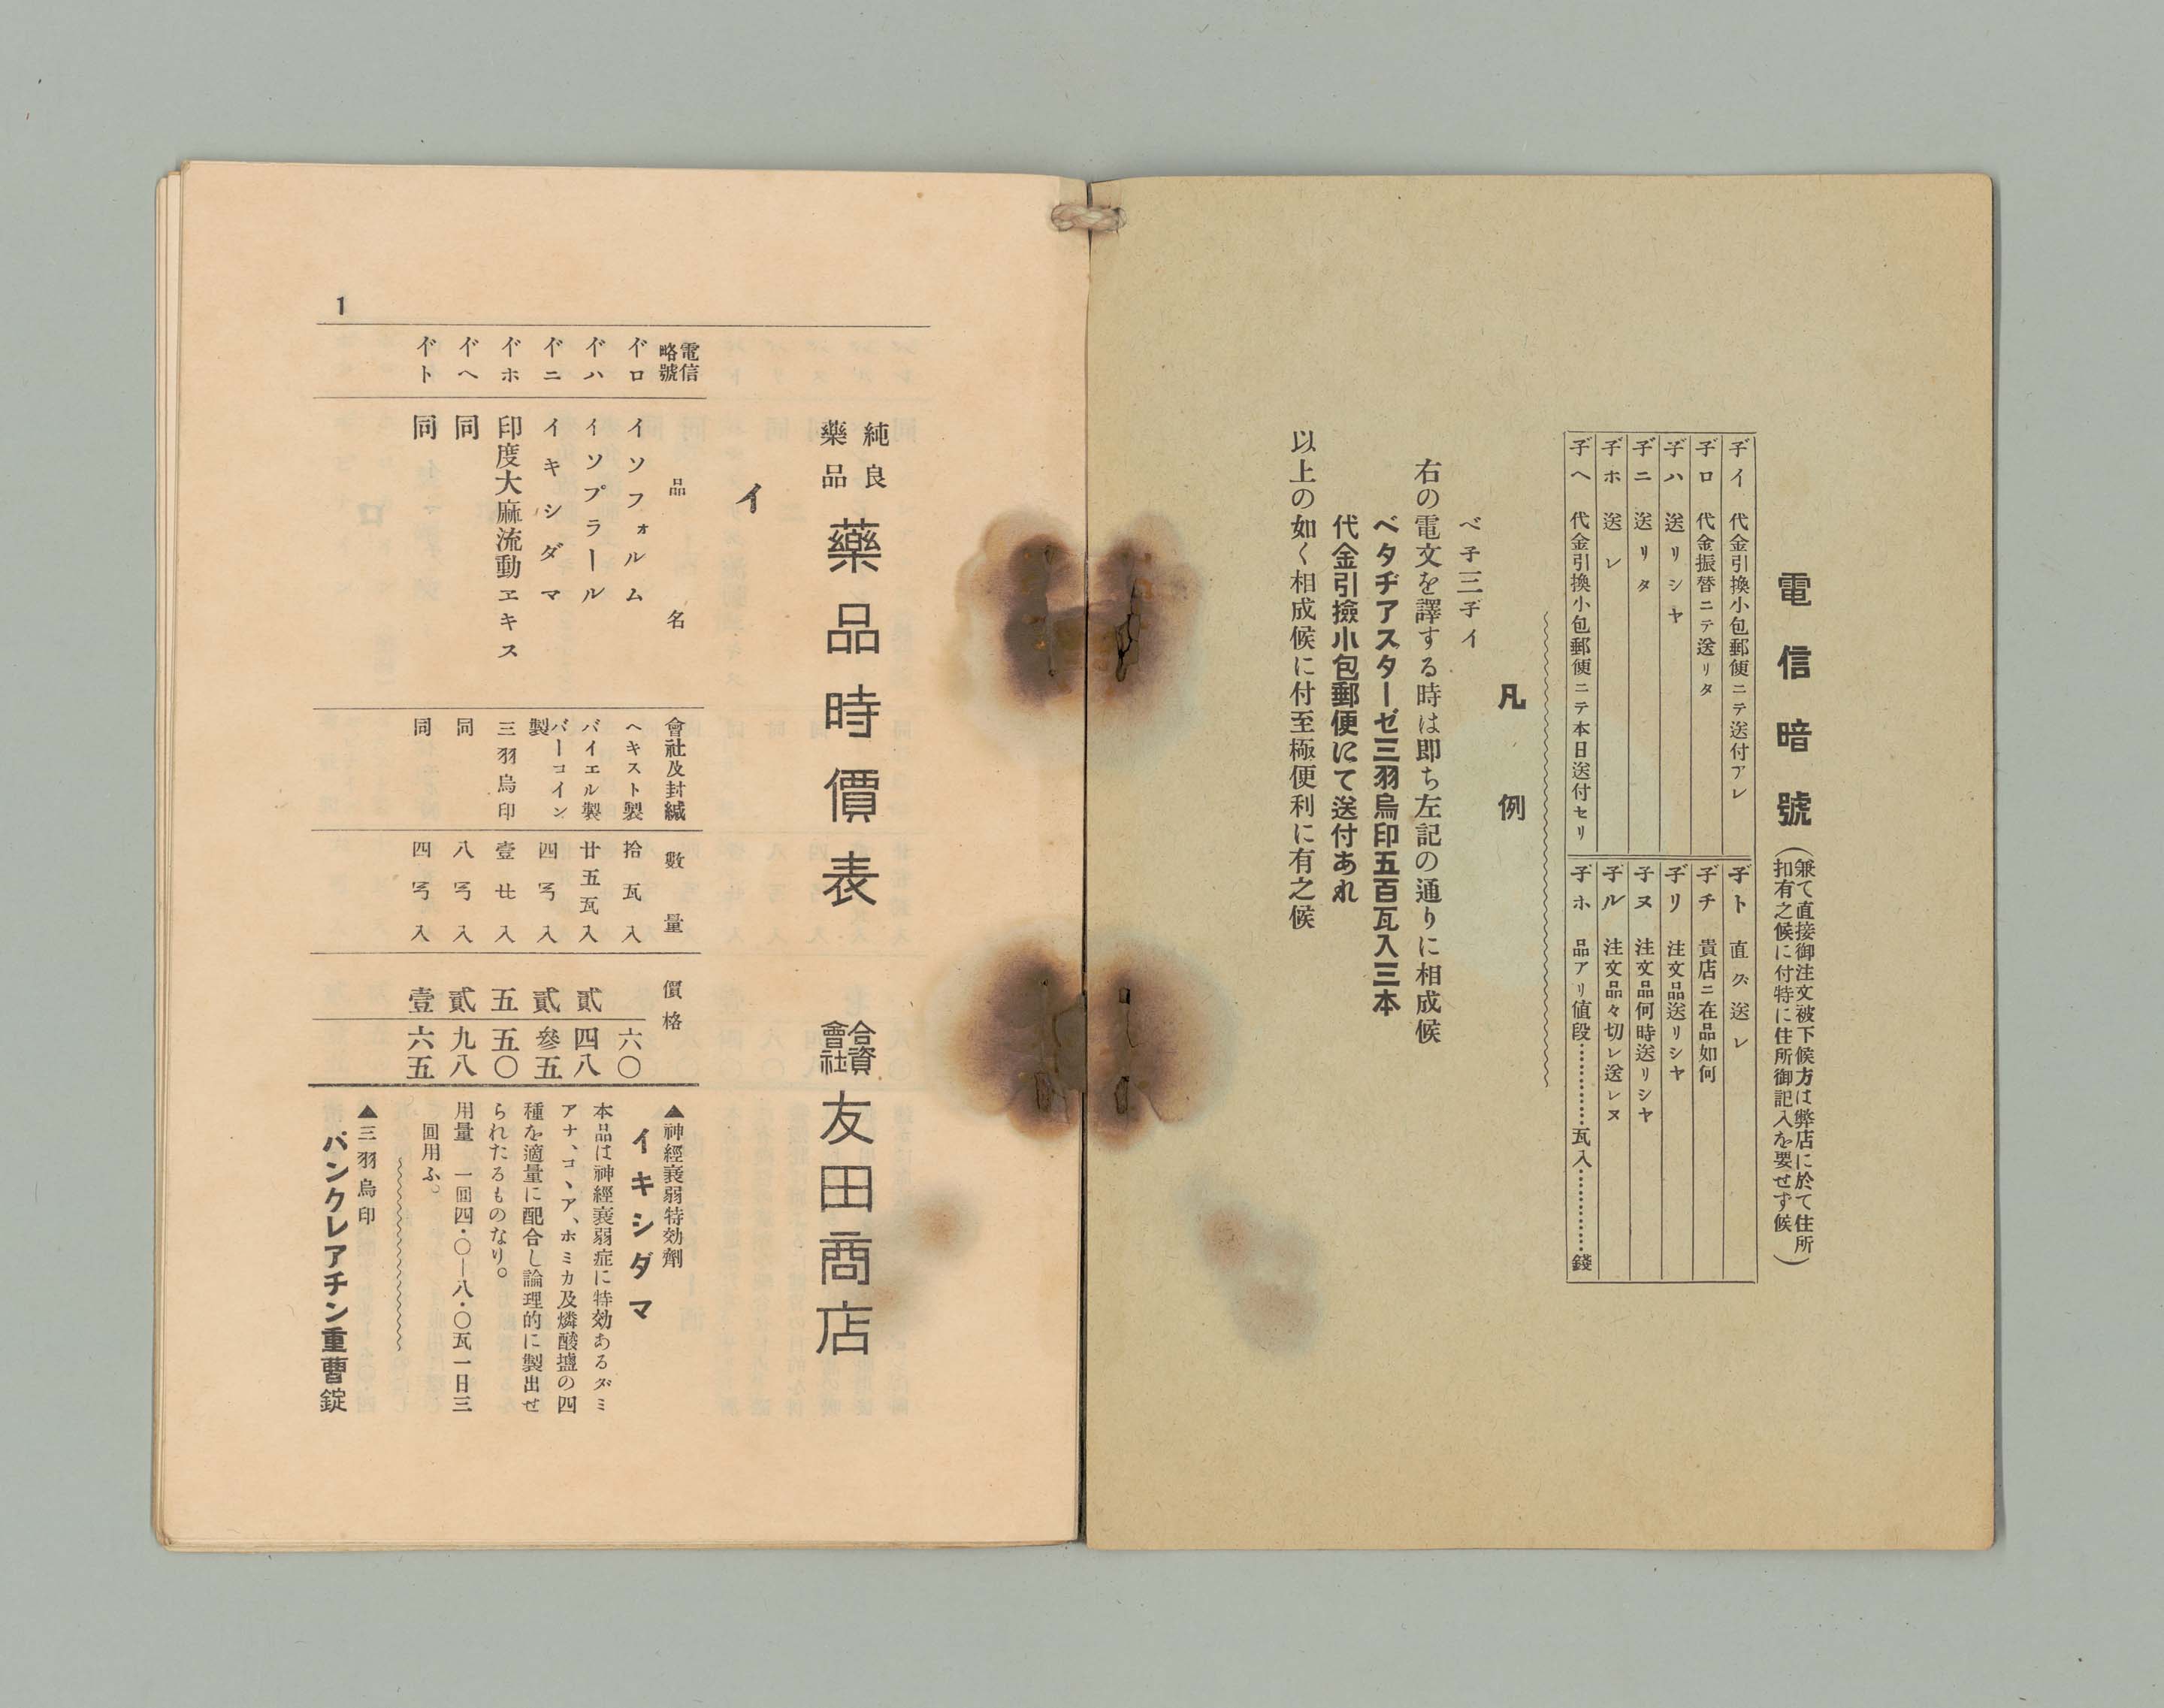 電信暗號
(兼て直接御注文被下候方は弊店に於て住所
扣有之候に付特に住所御記入を要せず候)
子゛イ 代金引換小包郵便ニテ送付アレ
子゛ロ 代金振替ニテ送リタ
子゛ハ 送リシヤ
子゛ニ 送リタ
子゛ホ 送レ
子゛ヘ 代金引換小包郵便ニテ本日送付セリ
子゛ト 直グ送レ
子゛チ 貴店ニ在品如何
子゛リ 注文品送リシヤ
子゛ヌ 注文品何時送リシヤ
子゛ル 注文品々切レ送レヌ
子゛ホ 品アリ値段…………瓦入…………錢
凡例
ベ子三子゛イ
右の電文を譯する時は即ち左記の通りに相成候
ベタヂアスターゼ三羽烏印五百瓦入三本
代金引換小包郵便にて送付あれ
以上の如く相成候に付至極便利に有之候
純良
藥品
藥品時價表
合資
會社
友田商店
イ
電信
略號
品名
會社及封緘
數量
價格
イ゛ロ イソフォルム ヘキスト製 拾瓦入 六〇
イ゛ハ イソプラール バイエル製 廿五瓦入 貳 四八
イ゛ニ イキシダマ バーコイン製 四㝍入 貳 參五
イ゛ホ 印度大麻流動ヱキス 三羽烏印 壹㐀入 五 五〇
イ゛ヘ 同 同 八㝍入 貳 九八
イ゛ト 同 同 四㝍入 壹 六五
▲神經衰弱特効劑
イキシダマ
本品は神經衰弱症に特効あるダミ
アナ、コヽア、ホミカ及燐酸鹽の四
種を適量に配合し論理的に製出せ
られたるものなり。
用量 一回四・〇―八・〇瓦一日三
回用ふ。
▲三羽烏印
パンクレアチン重曹錠
1